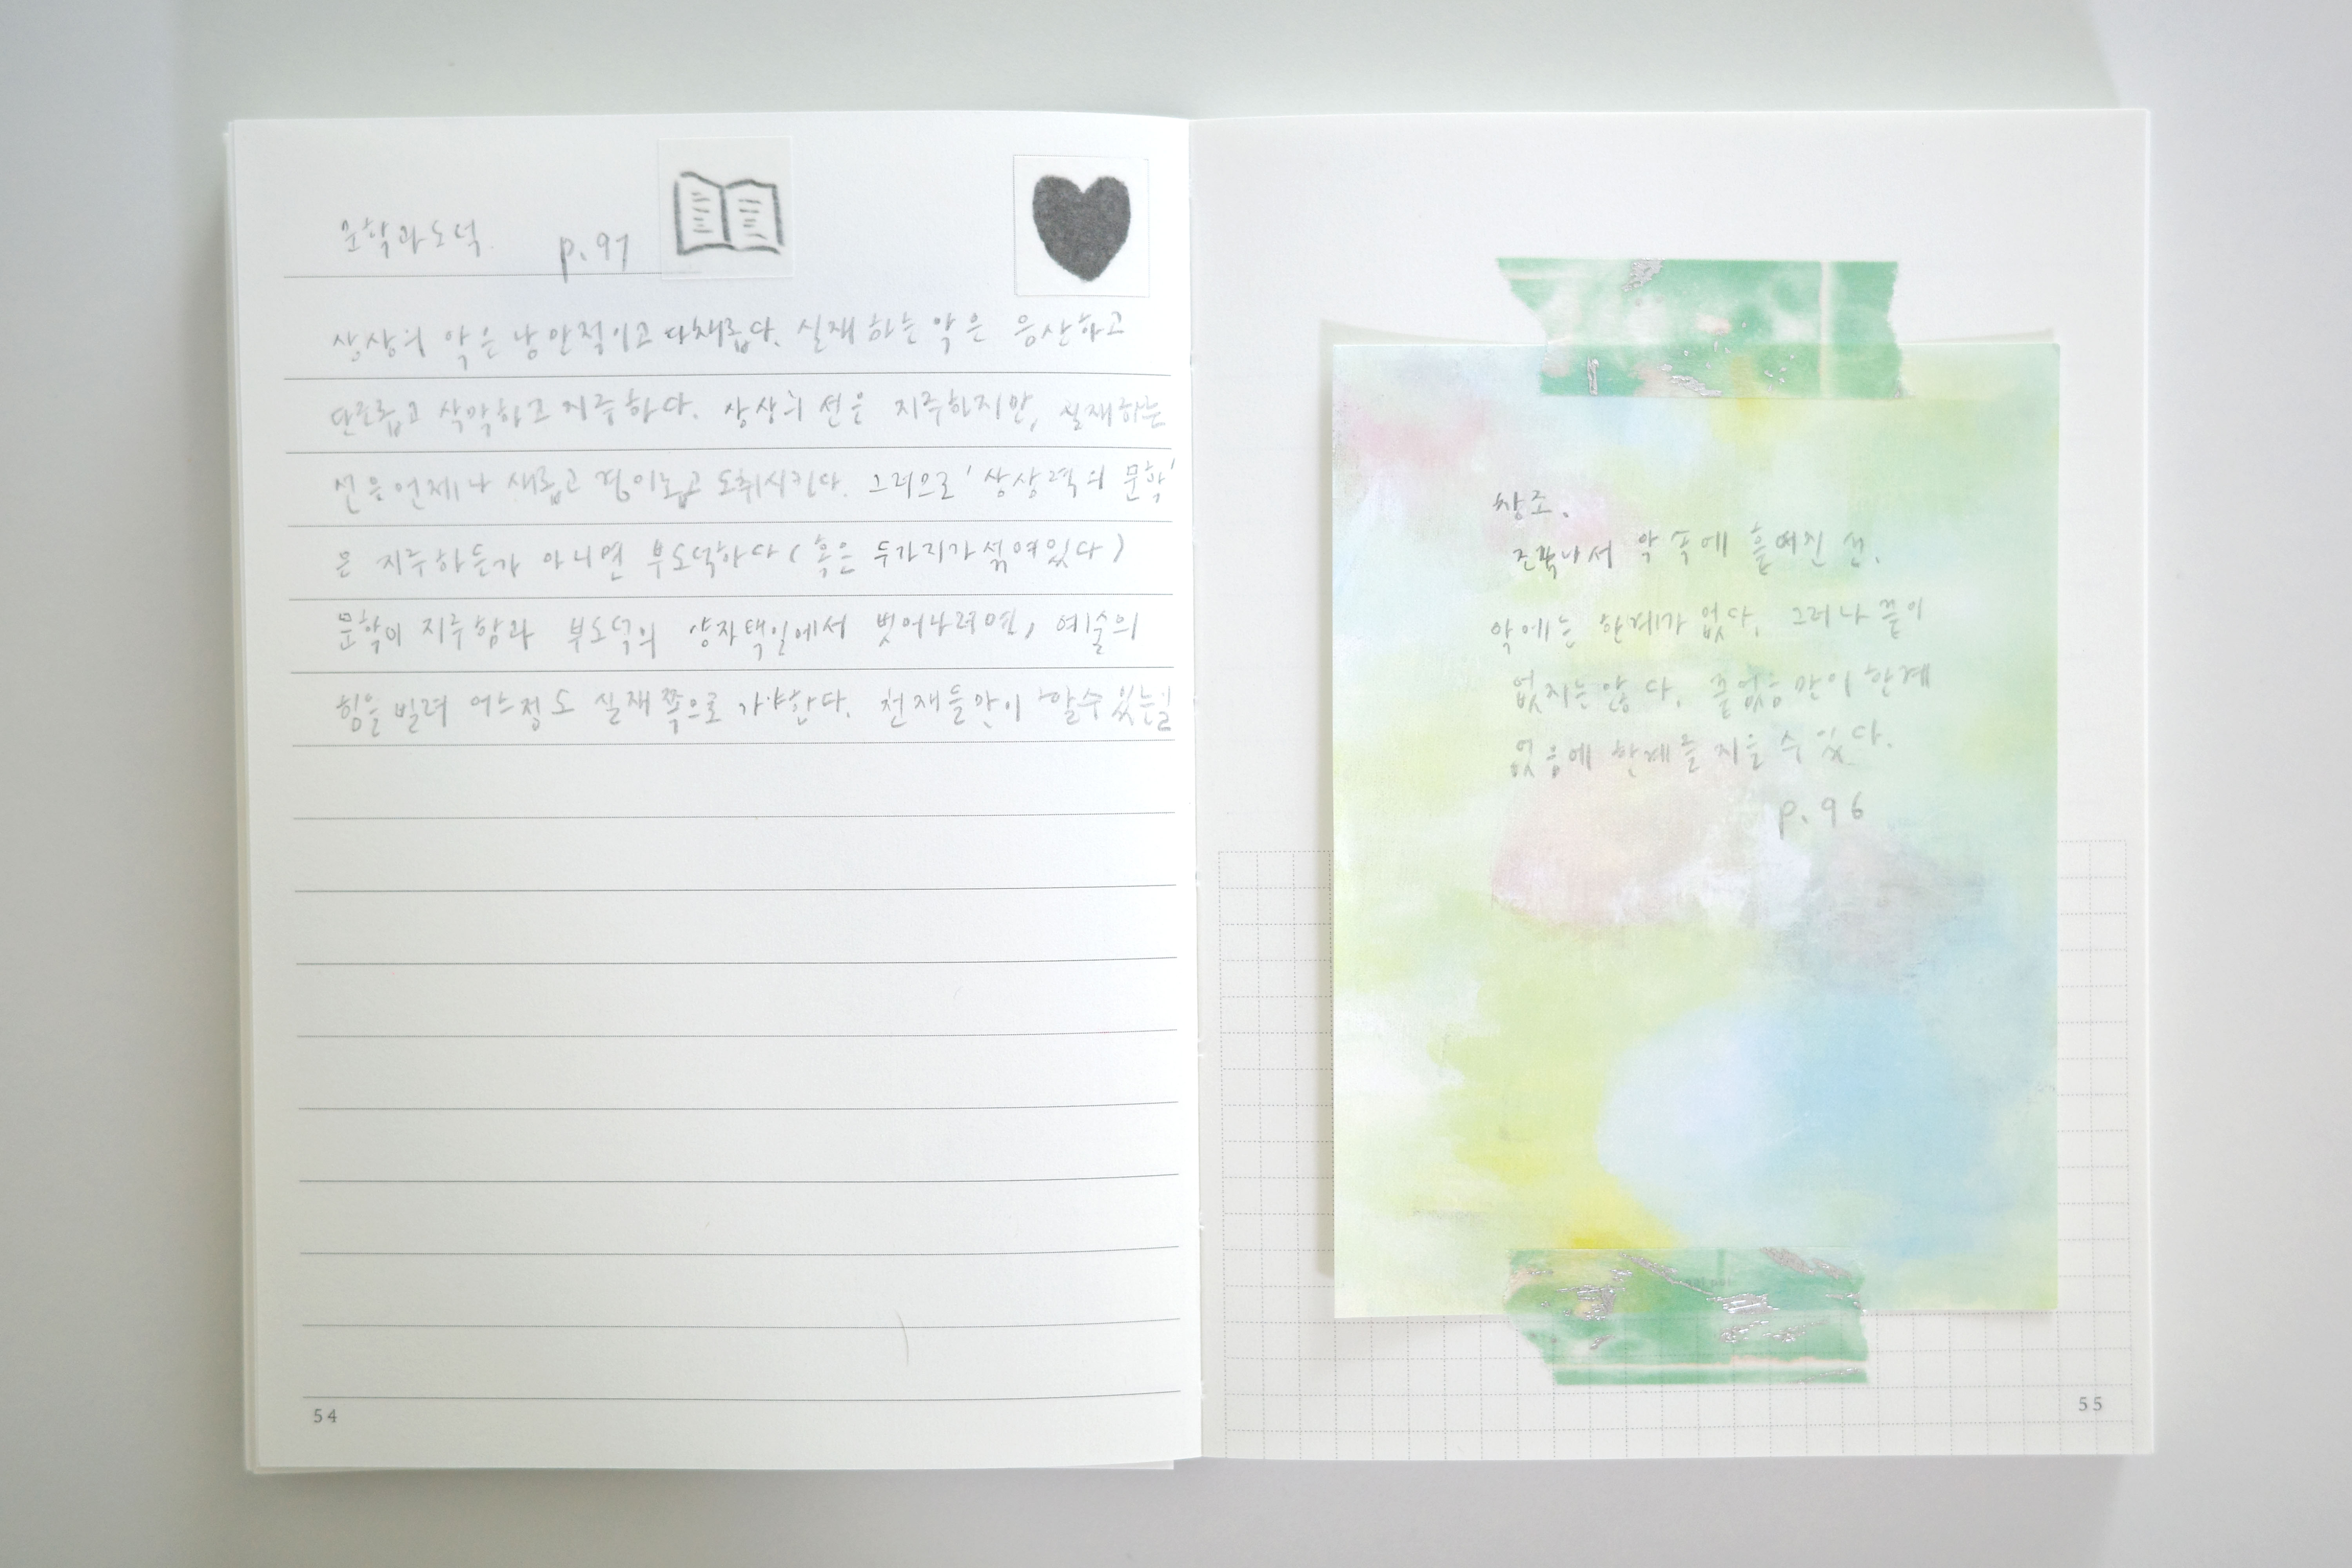 문학과도덕. p.97
상상의 악은 낭만적이고 다채롭다. 실재하는 악은 음산하고
단조롭고 삭막하고 지루하다. 상상의 선은 지루하지만, 실재하는
선은 언제나 새롭고 경이롭고 도취시킨다. 그러므로 '상상력의 문학'
은 지루하든가 아니면 부도덕하다 (혹은 두가지가 섞여있다)
문학이 지루함과 부도덕의 양자택일에서 벗어나려면, 예술의
힘을 빌려 어느정도 실재쪽으로 가야한다. 천재들만이 할수있는일
54
창조.
조각나서 악 속에 흩어진 선.
악에는 한계가 없다. 그러나 끝이
없지는 않다. 끝없음만이 한계
없음에 한계를 지을 수 있다.
p.96
55